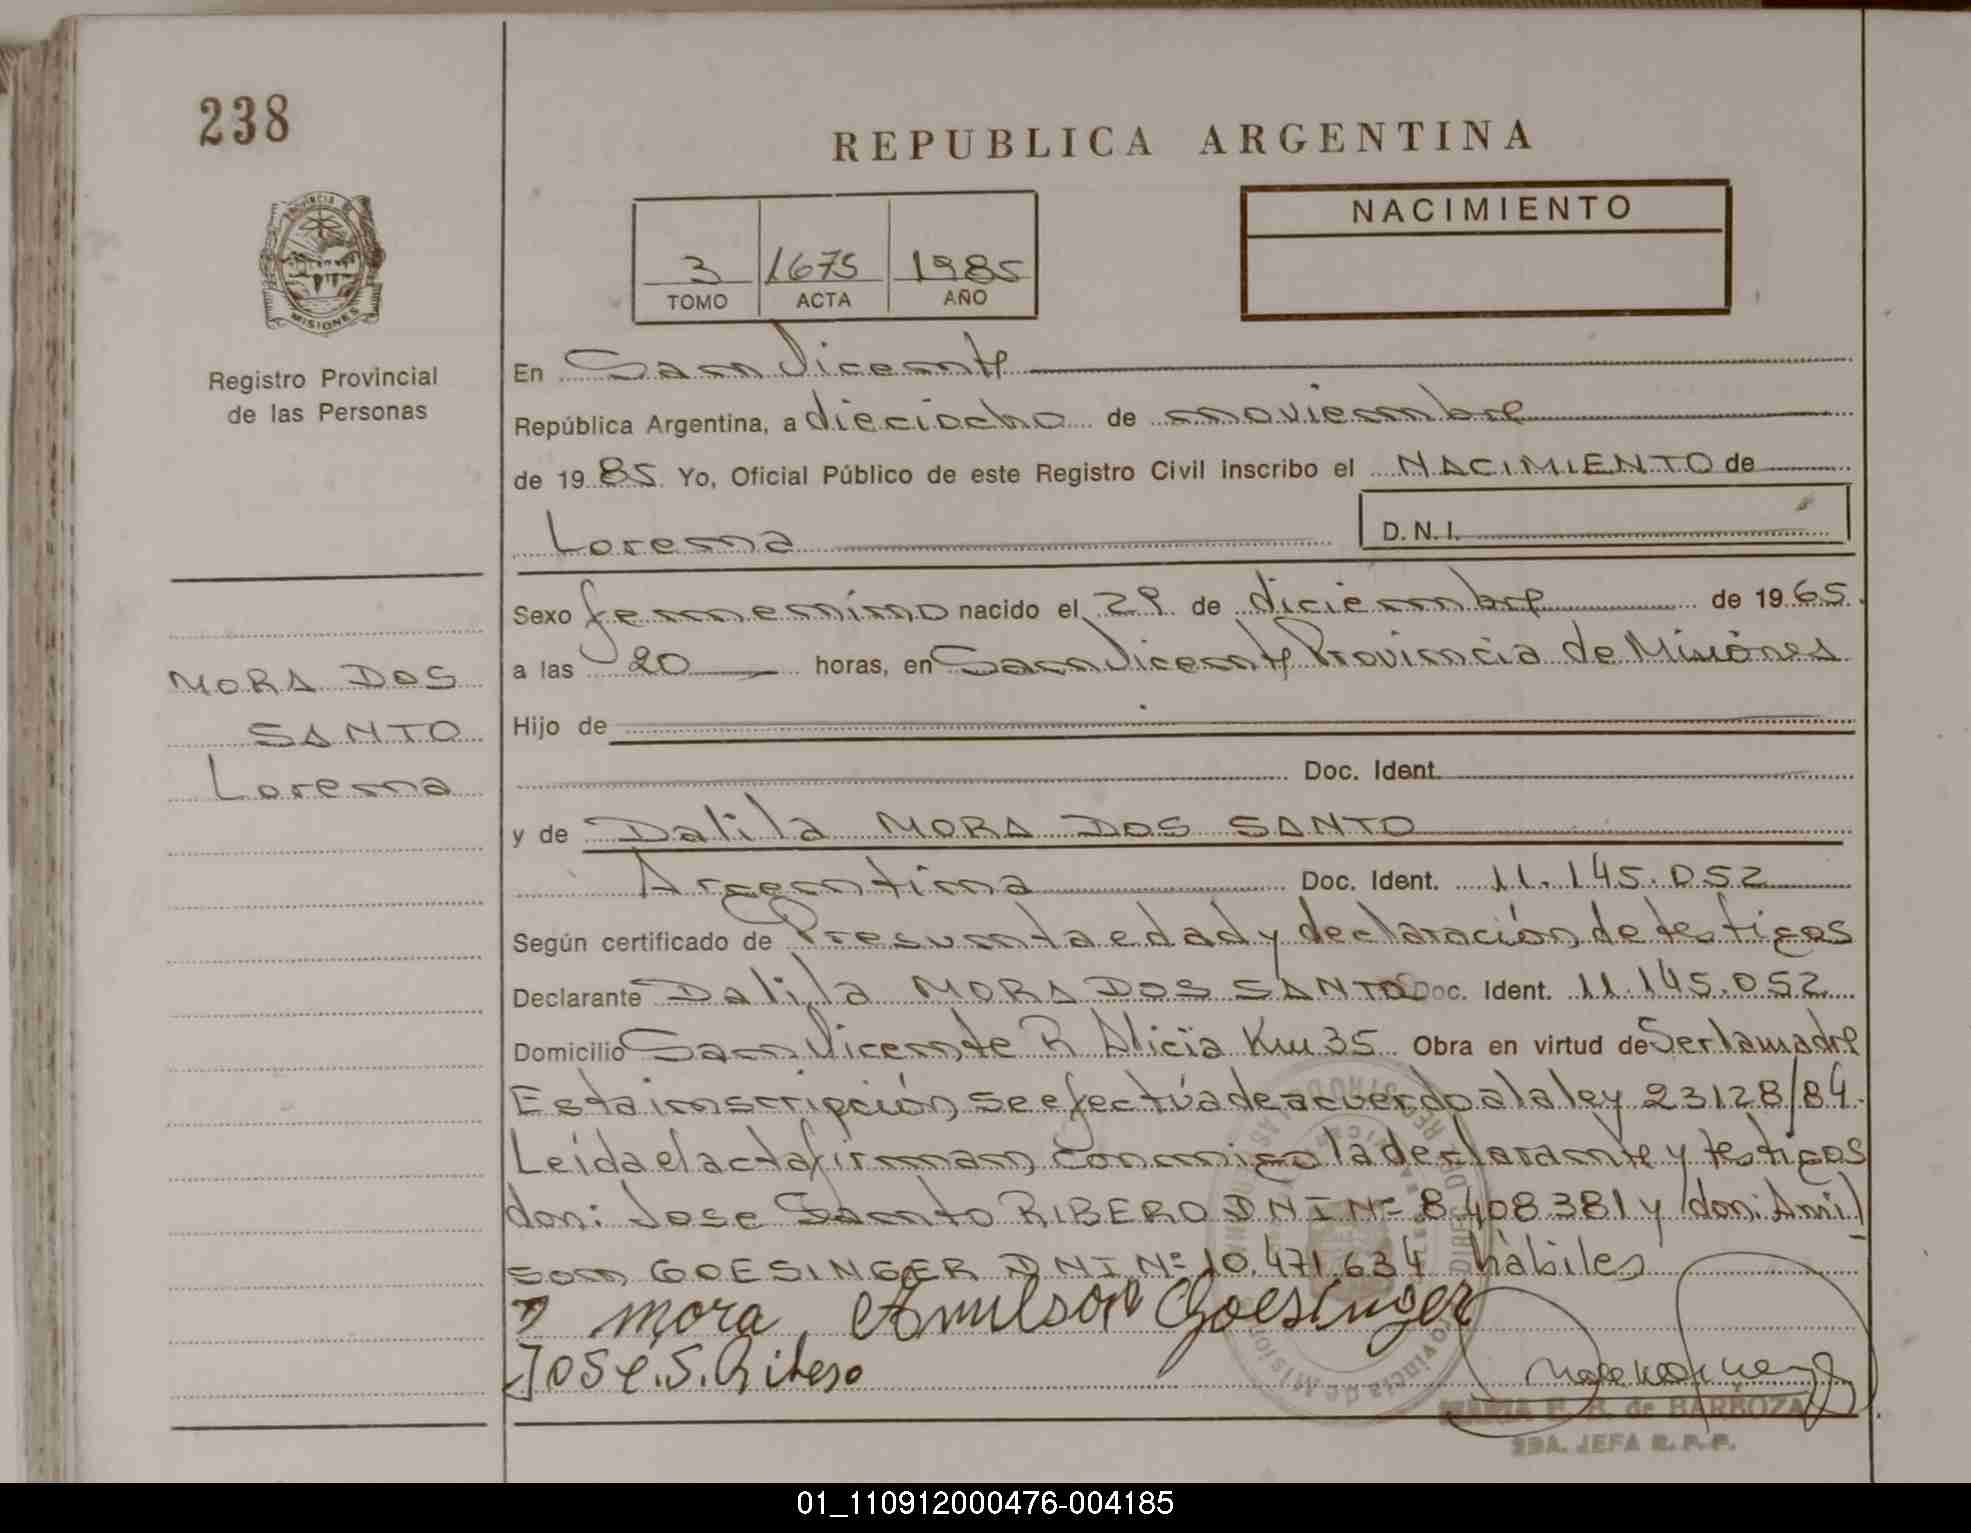 238
REPUBLICA ARGENTINA
NACIMIENTO
3 1675 1985
TOMO ACTA AÑO
PROVINCIA DE
MISIONES
Registro Provincial
de las Personas
En San Vicente
República Argentina, a dieciocho de noviembre
de 19 85 Yo, Oficial Público de este Registro Civil inscribo el NACIMIENTO de
Lorena
D.N.I.
Sexo femenino nacido el 29 de diciembre de 19 65.
a las 20 horas, en San Vicente Provincia de Misiones
MORA DOS
SANTO
Lorena
Hijo de
Doc. Ident.
y de Dalila MORA DOS SANTO
Argentina Doc. Ident. 11.145.052
Según certificado de Presunta edad y declaración de testigos
Declarante Dalila MORA DOS SANTO Doc. Ident. 11.145.052
Domicilio San Vicente R Alicia Km 35 Obra en virtud de Ser la madre
Esta inscripción se efectúa de acuerdo a la ley 23128/84.
Leída el acta firman conmigo la declarante y testigos
don: Jose Santo RIBERO DNI Nº 8.408381 y don: Amil
son GOESINGER DNI Nº 10.471.634 hábiles
mora Amilson Goesinger
Jose.S.Ribero
Provincia de Misiones
MARIA E. B. de BARBOZA
2DA. JEFA R.P.P.
01_110912000476-004185